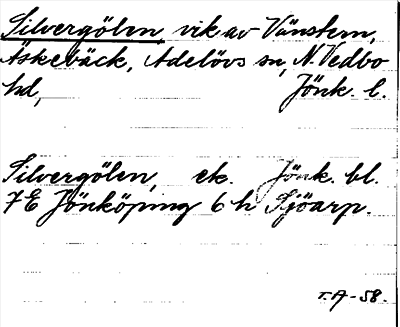 Silvergölen, vik av Vänstern,
Äskebäck, Adelövs sn, N. Vedbo
hd, Jönk. l.
Silvergölen, ek. Jönk. bl.
7E Jönköping 6 h Sjöarp.
T.A-58.